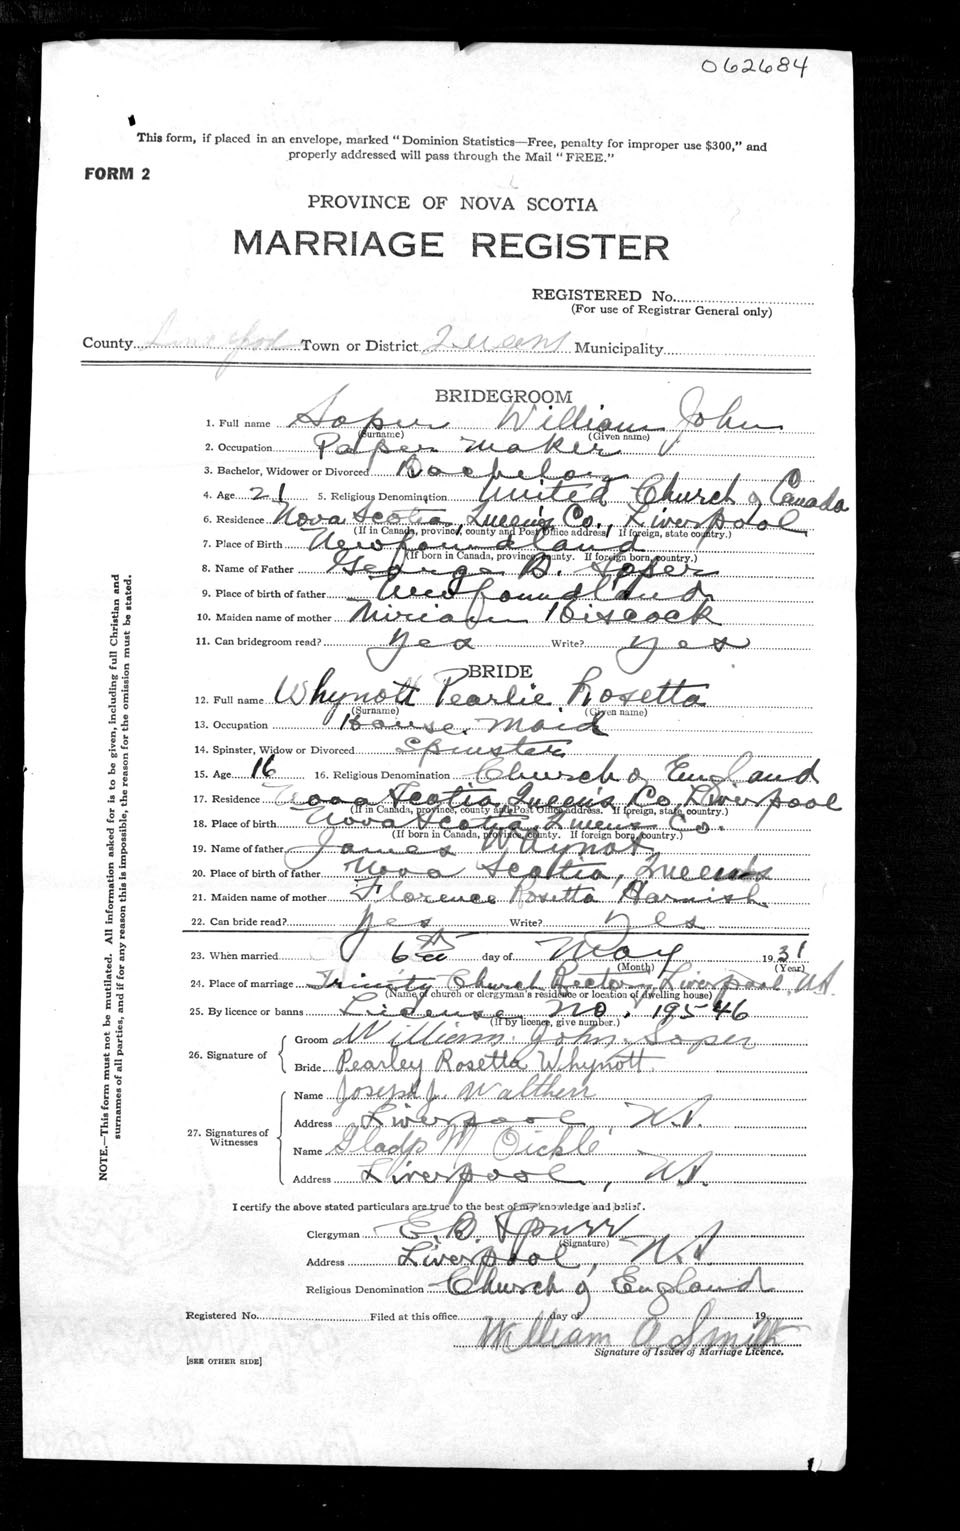 062684
This form, if placed in an envelope, marked "Dominion Statistics—Free, penalty for improper use $300," and
properly addressed will pass through the Mail "FREE."
FORM 2
PROVINCE OF NOVA SCOTIA
MARRIAGE REGISTER
REGISTERED No.
(For use of Registrar General only)
County Liverpool Town or District Queens Municipality
BRIDEGROOM
1. Full name Soper William John
(Surname) (Given name)
2. Occupation Paper maker
3. Bachelor, Widower or Divorced Bachelor
4. Age 21 5. Religious Denomination United Church of Canada
6. Residence Nova Scotia, Queen's Co., Liverpool
(If in Canada, province, county and Post Office address. If foreign, state country.)
7. Place of Birth Newfoundland
(If born in Canada, province, county. If foreign born, country.)
8. Name of Father George B. Soper
9. Place of birth of father Newfoundland
10. Maiden name of mother Miriam Hiscock
11. Can bridegroom read? Yes Write? Yes
BRIDE
12. Full name Whynott Pearlie Rosetta
(Surname) (Given name)
13. Occupation House Maid
14. Spinster, Widow or Divorced Spinster
15. Age 16 16. Religious Denomination Church of England
17. Residence Nova Scotia Queen's Co. Liverpool
(If in Canada, province, county and Post Office address. If foreign, state country.)
18. Place of birth Nova Scotia, Queens Co.
(If born in Canada, province, county. If foreign born, country.)
19. Name of father James Whynot
20. Place of birth of father Nova Scotia, Queens
21. Maiden name of mother Florence Rosetta Harnish
22. Can bride read? Yes Write? Yes
23. When married 6th day of May 1931
(Month) (Year)
24. Place of marriage Trinity Church Rectory, Liverpool, N.S.
(Name of church or clergyman's residence or location of dwelling house)
25. By licence or banns License No. 19546
(If by licence, give number.)
26. Signature of
Groom William John Soper
Bride Pearley Rosetta Whynott
27. Signatures of Witnesses
Name Joseph J. Walthen
Address Liverpool, N.S.
Name Gladys M Oickle
Address Liverpool, N.S.
I certify the above stated particulars are true to the best of my knowledge and belief.
Clergyman E. B. Spurr
(Signature)
Address Liverpool, N.S
Religious Denomination Church of England
Registered No. Filed at this office day of 19
William A Smith
Signature of Issuer of Marriage Licence.
[SEE OTHER SIDE]
NOTE.—This form must not be mutilated. All information asked for is to be given, including full Christian and
surnames of all parties, and if for any reason this is impossible, the reason for the omission must be stated.